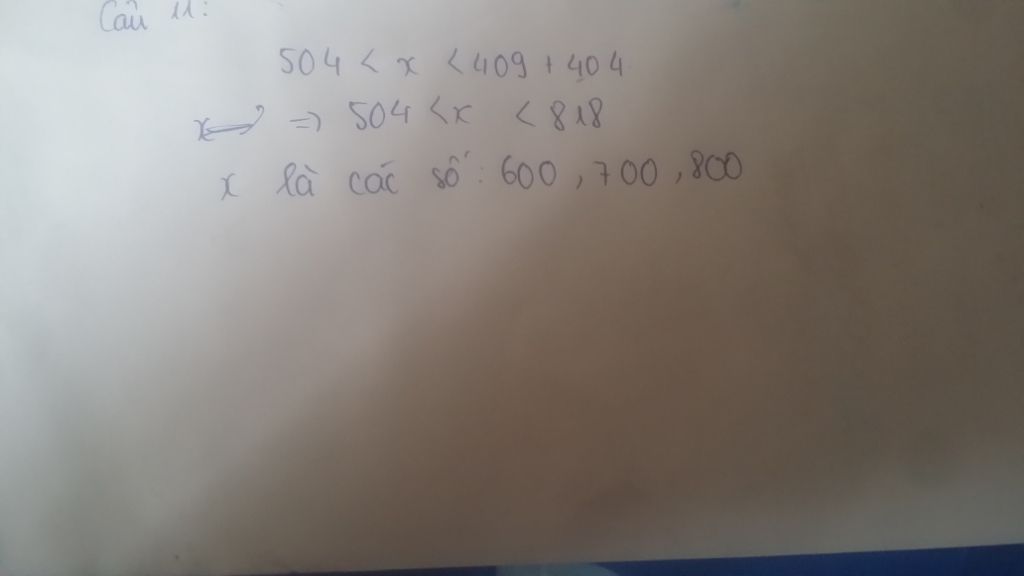 Câu 11:
504 < x < 409 + 404
=> 504 < x < 818
x là các số: 600, 700, 800